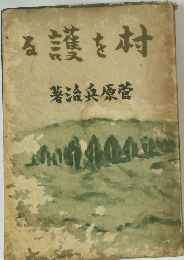 村を護る
菅原兵治著